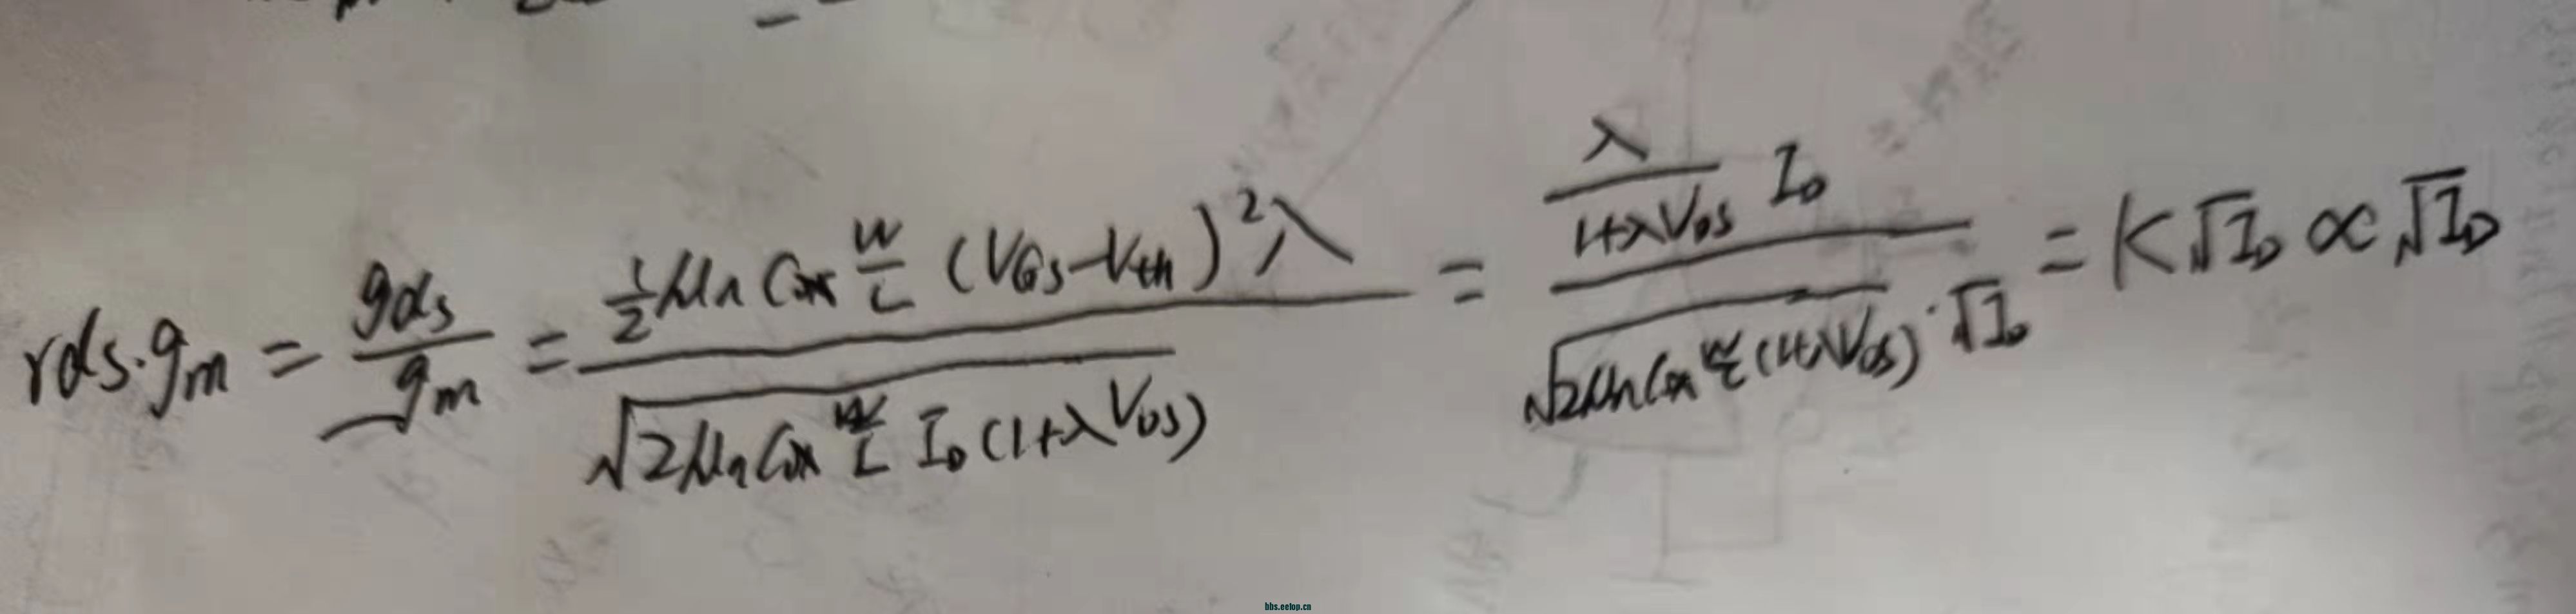 rds·gm = gds/gm = (½ μn Cox W/L (VGS-Vth)²λ) / √(2μn Cox W/L ID (1+λVDS)) = (λ/(1+λVDS) ID) / (√(2μn Cox W/L (1+λVDS)) · √ID) = K√ID ∝ √ID
bbs.eetop.cn